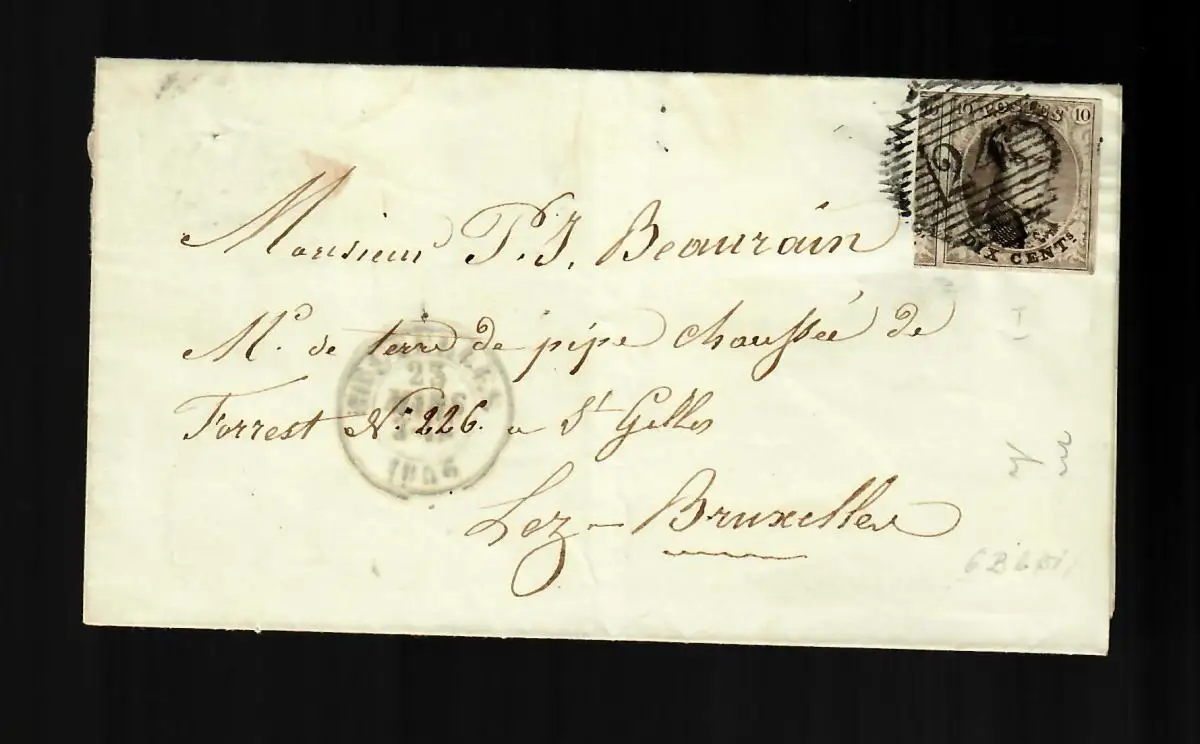 10 POSTES 10
24
DIX CENTS
Monsieur P. J. Beaurain
Md. de terre de pipe chaussée de
Forrest No. 226. a St Gilles
Lez-Bruxelles
BRUXELLES
23
MARS
1856
I